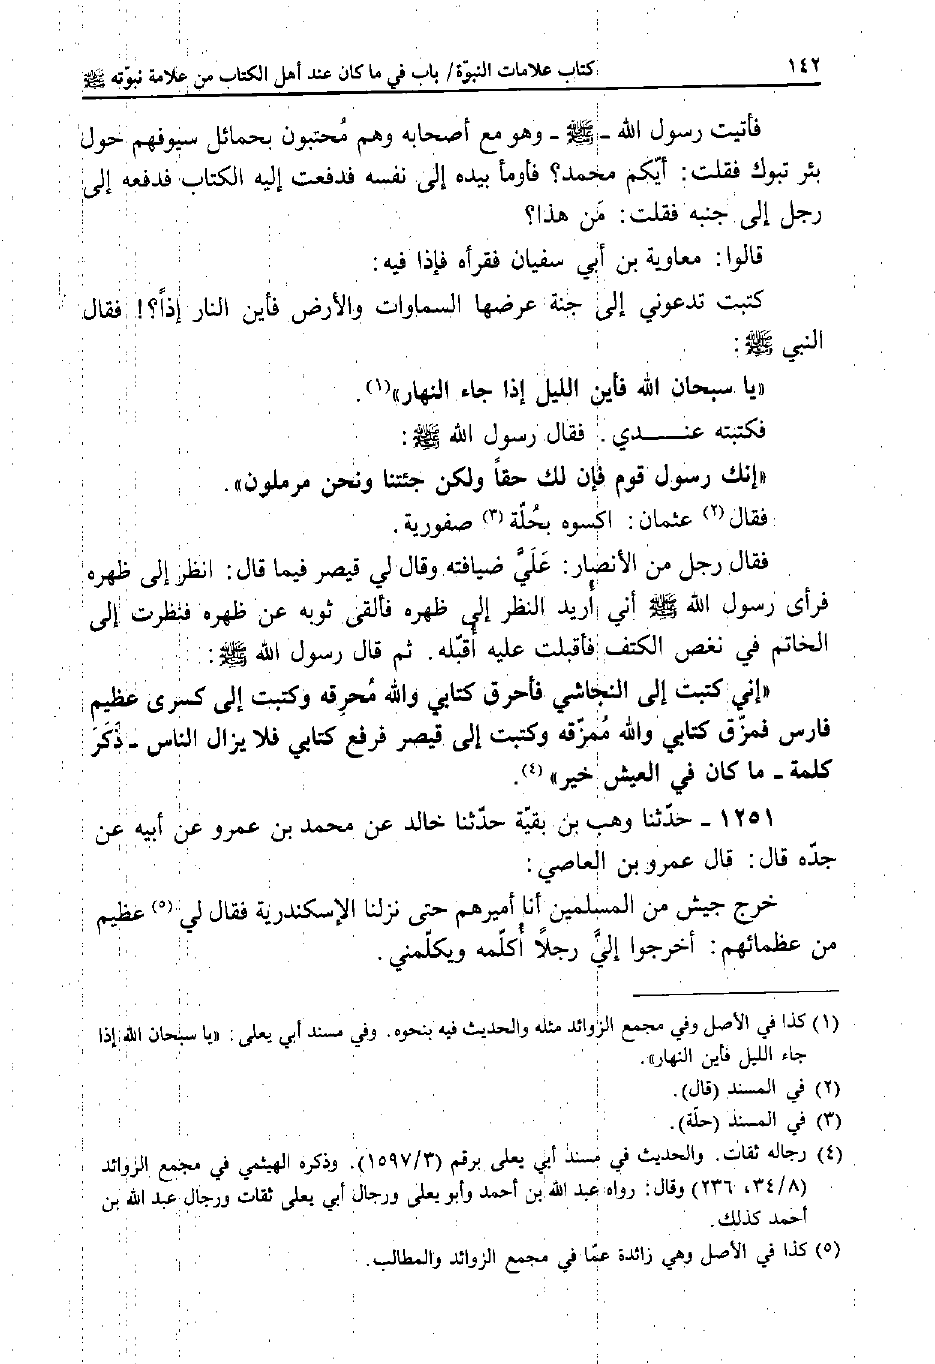 ١٤٢ كتاب علامات النبوّة/ باب في ما كان عند أهل الكتاب من علامة نبوّته ﷺ
فأتيت رسول الله ـ ﷺ ـ وهو مع أصحابه وهم مُحتبون بحمائل سيوفهم حول
بئر تبوك فقلت: أيّكم محمد؟ فأومأ بيده إلى نفسه فدفعت إليه الكتاب فدفعه إلى
رجل إلى جنبه فقلت: مَن هذا؟
قالوا: معاوية بن أبي سفيان فقرأه فإذا فيه:
كتبت تدعوني إلى جنة عرضها السماوات والأرض فأين النار إذاً؟! فقال
النبي ﷺ:
«يا سبحان الله فأين الليل إذا جاء النهار»(١).
فكتبته عنـــــدي. فقال رسول الله ﷺ:
«إنك رسول قوم فإن لك حقاً ولكن جئتنا ونحن مرملون».
فقال(٢) عثمان: اكسوه بحُلّة(٣) صفورية.
فقال رجل من الأنصار: عَلَيَّ ضيافته وقال لي قيصر فيما قال: انظر إلى ظهره
فرأى رسول الله ﷺ أني أُريد النظر إلى ظهره فألقى ثوبه عن ظهره فنظرت إلى
الخاتم في نغص الكتف فأقبلت عليه أُقبّله. ثم قال رسول الله ﷺ:
«إني كتبت إلى النجاشي فأحرق كتابي والله مُحرِقه وكتبت إلى كسرى عظيم
فارس فمزّق كتابي والله مُمزّقه وكتبت إلى قيصر فرفع كتابي فلا يزال الناس ـ ذَكَرَ
كلمة ـ ما كان في العيش خير»(٤).
١٢٥١ ـ حدّثنا وهب بن بقيّة حدّثنا خالد عن محمد بن عمرو عن أبيه عن
جدّه قال: قال عمرو بن العاصي:
خرج جيش من المسلمين أنا أميرهم حتى نزلنا الإسكندرية فقال لي(٥) عظيم
من عظمائهم: أخرجوا إليَّ رجلاً أُكلّمه ويكلّمني.
(١) كذا في الأصل وفي مجمع الزوائد مثله والحديث فيه بنحوه. وفي مسند أبي يعلى: «يا سبحان الله إذا
جاء الليل فأين النهار».
(٢) في المسند (قال).
(٣) في المسند (حلّة).
(٤) رجاله ثقات. والحديث في مسند أبي يعلى برقم (١٥٩٧/٣). وذكره الهيثمي في مجمع الزوائد
(٣٤/٨، ٢٣٦) وقال: رواه عبد الله بن أحمد وأبو يعلى ورجال أبي يعلى ثقات ورجال عبد الله بن
أحمد كذلك.
(٥) كذا في الأصل وهي زائدة عمّا في مجمع الزوائد والمطالب.